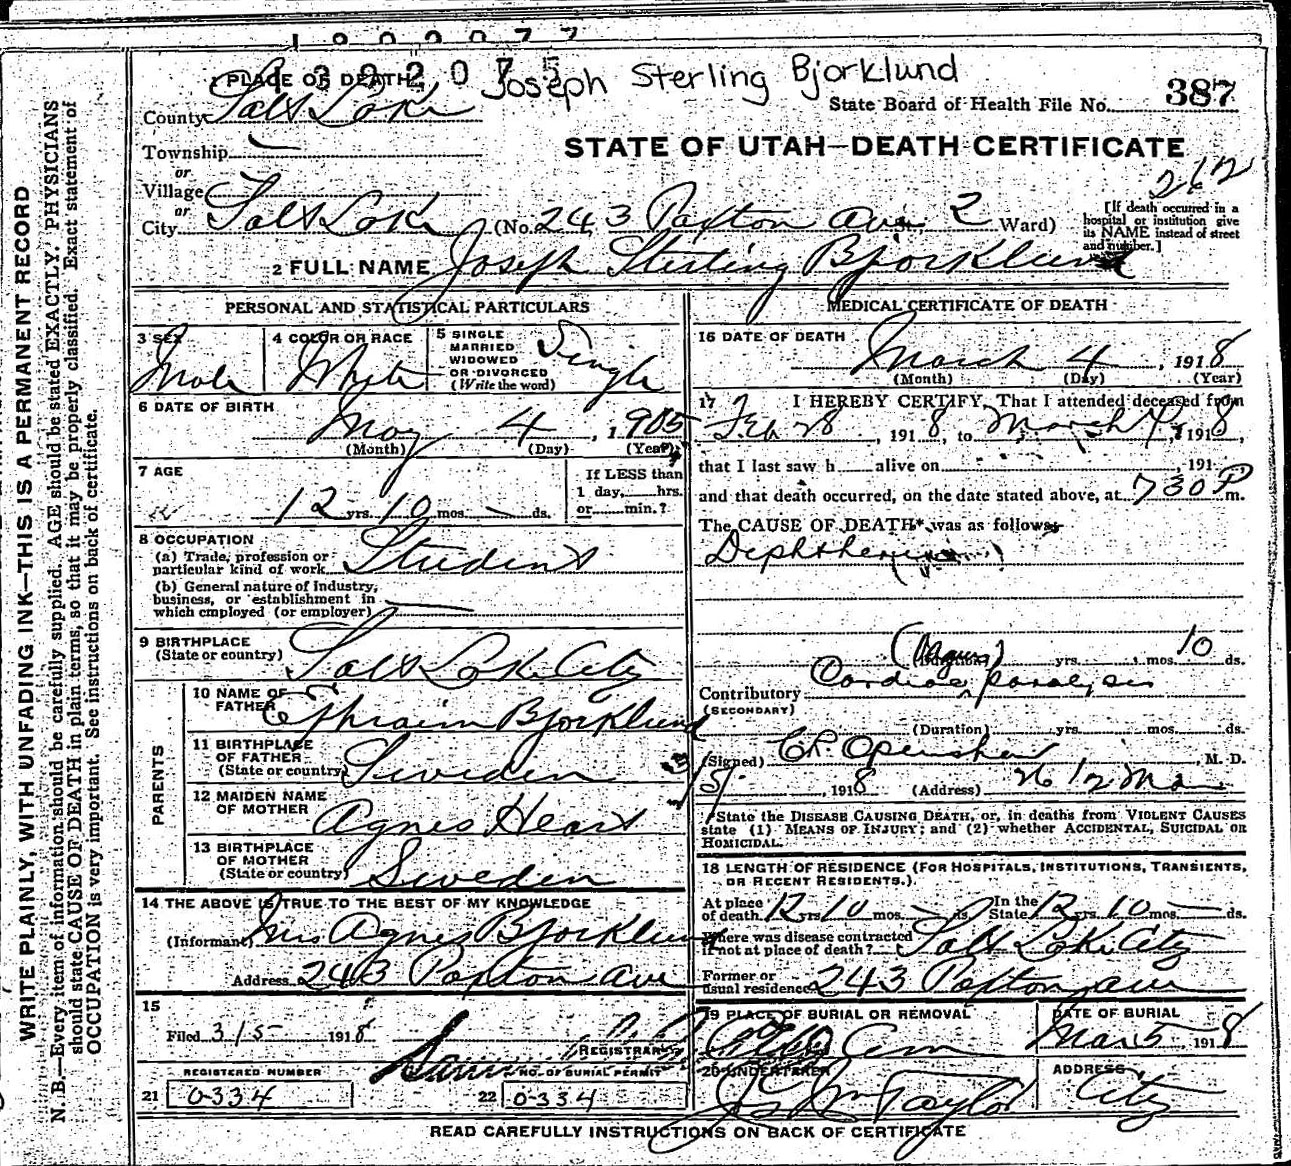 1 PLACE OF DEATH
392075
Joseph Sterling Bjorklund
State Board of Health File No. 387
County Salt Lake
STATE OF UTAH—DEATH CERTIFICATE
Township
or
Village
or
City Salt Lake (No. 243 Paxton Ave. 2 Ward)
[If death occurred in a hospital or institution give its NAME instead of street and number.]
2 FULL NAME Joseph Sterling Bjorklund
PERSONAL AND STATISTICAL PARTICULARS
3 SEX Male
4 COLOR OR RACE White
5 SINGLE MARRIED WIDOWED OR DIVORCED (Write the word) Single
6 DATE OF BIRTH
May 4, 1905
(Month) (Day) (Year)
7 AGE
12 yrs. 10 mos. — ds.
If LESS than 1 day, hrs. or min.?
8 OCCUPATION
(a) Trade, profession or particular kind of work Student
(b) General nature of Industry, business, or establishment in which employed (or employer)
9 BIRTHPLACE
(State or country) Salt Lake City
PARENTS
10 NAME OF FATHER Ephraim Bjorklund
11 BIRTHPLACE OF FATHER (State or country) Sweden
12 MAIDEN NAME OF MOTHER Agnes
13 BIRTHPLACE OF MOTHER (State or country) Sweden
14 THE ABOVE IS TRUE TO THE BEST OF MY KNOWLEDGE
(Informant) Mrs Agnes Bjorklund
Address 243 Paxton Ave
15
Filed 3/5 1918
REGISTRAR
REGISTERED NUMBER
21 0334
NO. OF BURIAL PERMIT
22 0334
MEDICAL CERTIFICATE OF DEATH
16 DATE OF DEATH
March 4, 1918
(Month) (Day) (Year)
17 I HEREBY CERTIFY, That I attended deceased from
Feb 28, 1918, to March 4, 1918,
that I last saw h alive on , 191
and that death occurred, on the date stated above, at 730 P m.
The CAUSE OF DEATH* was as follows:
Diphtheria
(Duration) yrs. mos. 10 ds.
Contributory Cardiac paralysis
(SECONDARY)
(Duration) yrs. mos. ds.
(Signed) Openshaw, M. D.
3/5, 1918 (Address) 26 1/2 Main
*State the DISEASE CAUSING DEATH, or, in deaths from VIOLENT CAUSES state (1) MEANS OF INJURY; and (2) whether ACCIDENTAL, SUICIDAL OR HOMICIDAL.
18 LENGTH OF RESIDENCE (FOR HOSPITALS, INSTITUTIONS, TRANSIENTS, OR RECENT RESIDENTS.)
At place of death 12 yrs 10 mos — ds. In the State 12 yrs. 10 mos — ds.
Where was disease contracted if not at place of death? Salt Lake City
Former or usual residence 243 Paxton Ave
19 PLACE OF BURIAL OR REMOVAL
City Cem
DATE OF BURIAL
Mar 5 1918
20 UNDERTAKER
Taylor
ADDRESS
City
READ CAREFULLY INSTRUCTIONS ON BACK OF CERTIFICATE
WRITE PLAINLY, WITH UNFADING INK—THIS IS A PERMANENT RECORD
N. B.—Every item of information should be carefully supplied. AGE should be stated EXACTLY. PHYSICIANS
should state CAUSE OF DEATH in plain terms, so that it may be properly classified. Exact statement of
OCCUPATION is very important. See instructions on back of certificate.